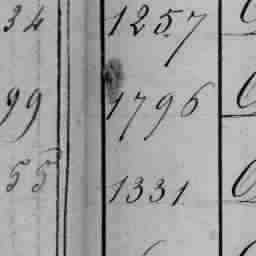 34 1257
99 1796
55 1331